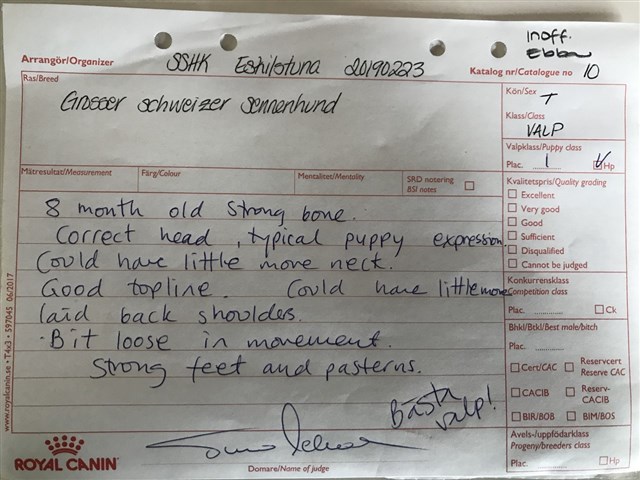 inoff.
Ebba
Arrangör/Organizer SSHK Eskilstuna 20190223
Katalog nr/Catalogue no 10
Ras/Breed
Grosser schweizer sennenhund
Kön/Sex T
Klass/Class
VALP
Valpklass/Puppy class
Plac. 1 Hp
Mätresultat/Measurement Färg/Colour Mentalitet/Mentality SRD notering
BSI notes
Kvalitetspris/Quality grading
Excellent
Very good
Good
Sufficient
Disqualified
Cannot be judged
8 month old strong bone.
Correct head, typical puppy expression.
Could have little more neck.
Good topline. Could have little more
laid back shoulder.
Bit loose in movement.
Strong feet and pasterns.
Bästa
valp!
Konkurrensklass
Competition class
Plac. Ck
Bhkl/Btkl/Best male/bitch
Plac.
Cert/CAC Reservcert
Reserve CAC
CACIB Reserv-
CACIB
BIR/BOB BIM/BOS
Avels-/uppfödarklass
Progeny/breeders class
Plac. Hp
ROYAL CANIN
Domare/Name of judge
www.royalcanin.se • T4x3 • 597045 06/2017